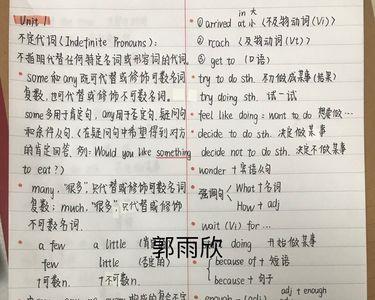 Unit 1
不定代词 (Indefinite Pronouns):
不指明代替任何特定名词或形容词的代词。
some和any既可代替或修饰可数名词
复数,也可代替或修饰不可数名词。
some多用于肯定句,any用于否定句、疑问句
和条件从句。(若疑问句中希望得到对方
的肯定回答,例:Would you like something
to eat?)
many."很多",只代替或修饰可数名词
复数; much."很多",只代替或修饰
不可数名词.
a few a little
few little
↑可数n. ↑不可数n.
① arrived at 小 in 大 (不及物动词(Vi))
② reach (及物动词(Vt))
③ get to (口语)
try to do sth. 尽力做某事(结果)
try doing sth. 试一试
feel like doing = want to do 想要做…
decide to do sth. 决定做某事
decide not to do sth. 决定不做某事
wonder + 宾语从句
感叹句 What + 名词
How + adj
wait (Vi) for …
doing 开始做某事
because of + 短语
because + 句子
adj + enough
郭雨欣